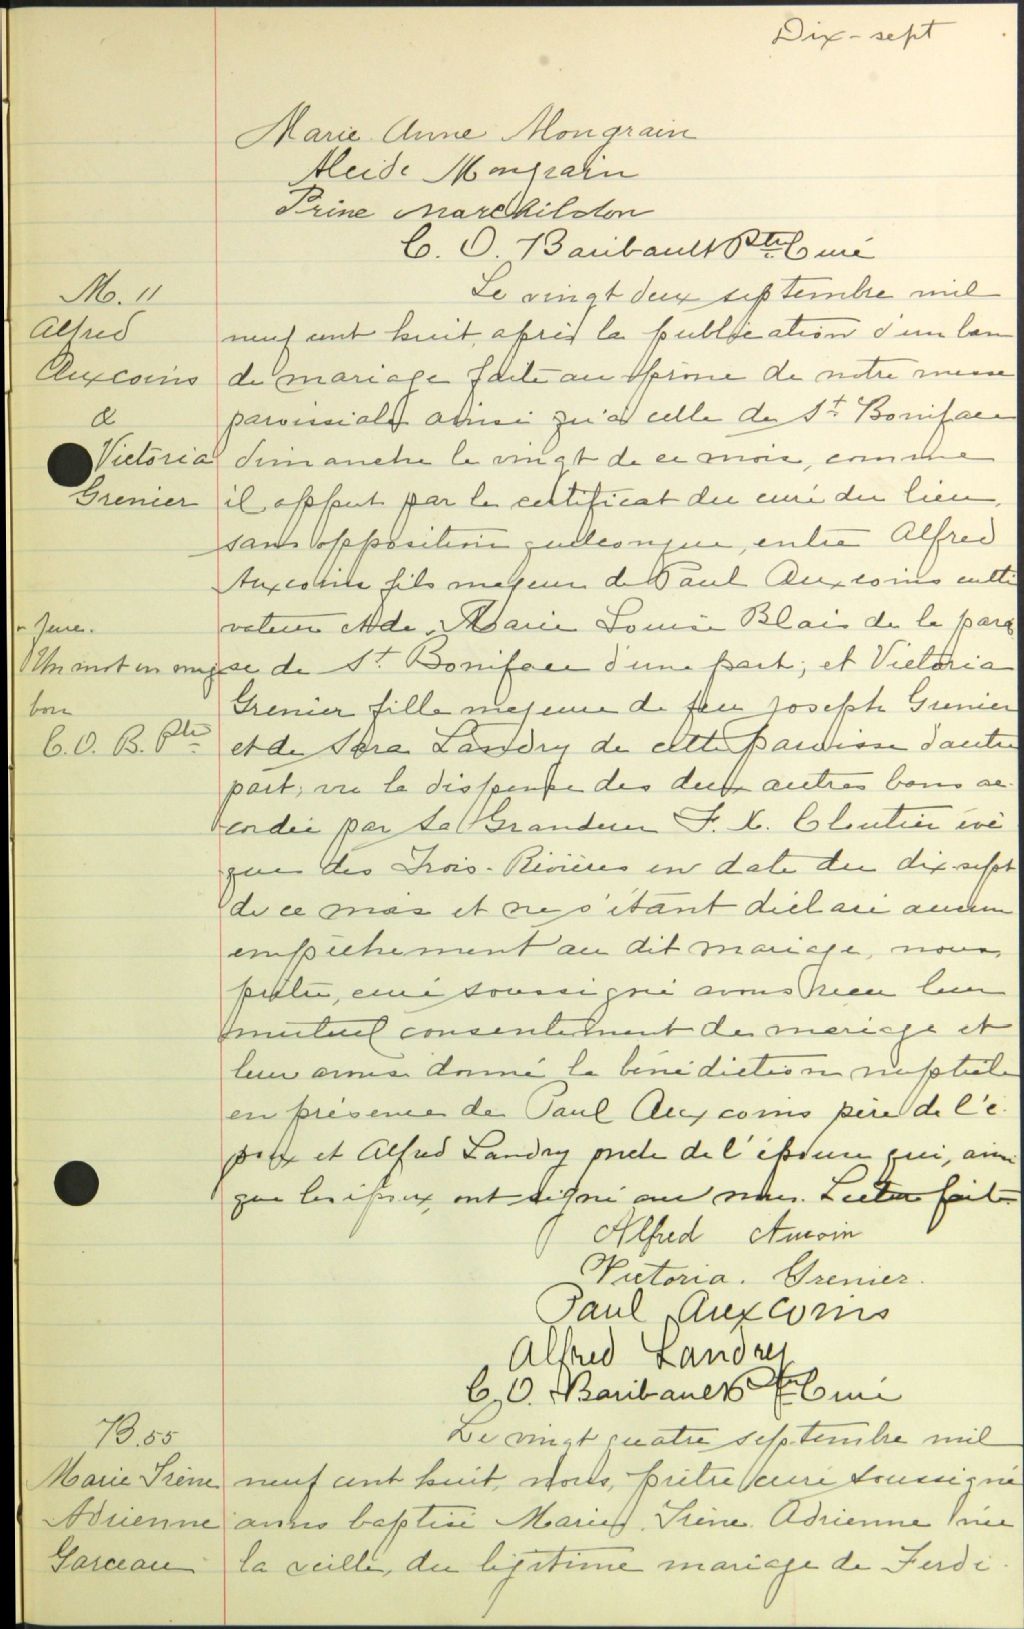 Dix-sept
Marie Anne Mongrain
Alcide Mongrain
Prime Marchildon
C. O. Baribault Ptre Curé
M. 11
Alfred
Auxcoins
&
Victoria
Grenier
Le vingt deux septembre mil
neuf cent huit, après la publication d'un ban
de mariage faite au prône de notre messe
paroissiale ainsi qu'à celle de St. Boniface
dimanche le vingt de ce mois, comme
il appert par le certificat du curé du lieu,
sans opposition quelconque, entre Alfred
Auxcoins fils majeur de Paul Auxcoins culti
vateur et de Marie Louise Blais de la parois
se de St. Boniface d'une part; et Victoria
Grenier fille majeure de feu Joseph Grenier
et de Sara Landry de cette paroisse d'autre
part; vu la dispense des deux autres bans ac-
cordée par Sa Grandeur F. X. Cloutier évê
que des Trois-Rivières en date du dix-sept
de ce mois et ne s'étant déclaré aucun
empêchement au dit mariage, nous,
prêtre, curé soussigné avons reçu leur
mutuel consentement de mariage et
leur avons donné la bénédiction nuptiale
en présence de Paul Auxcoins père de l'é-
poux et Alfred Landry oncle de l'épouse qui, ainsi
que les époux, ont signé avec nous. Lecture faite.
Un mot en marge
bon
C. O. B. Ptre
Alfred Aucoin
Victoria. Grenier.
Paul Auxcoins
Alfred Landry
C. O. Baribault Ptre Curé
B. 55
Marie Irène
Adrienne
Garceau
Le vingt quatre septembre mil
neuf cent huit, nous, prêtre curé soussigné
avons baptisé Marie Irène Adrienne née
la veille, du légitime mariage de Ferdi-